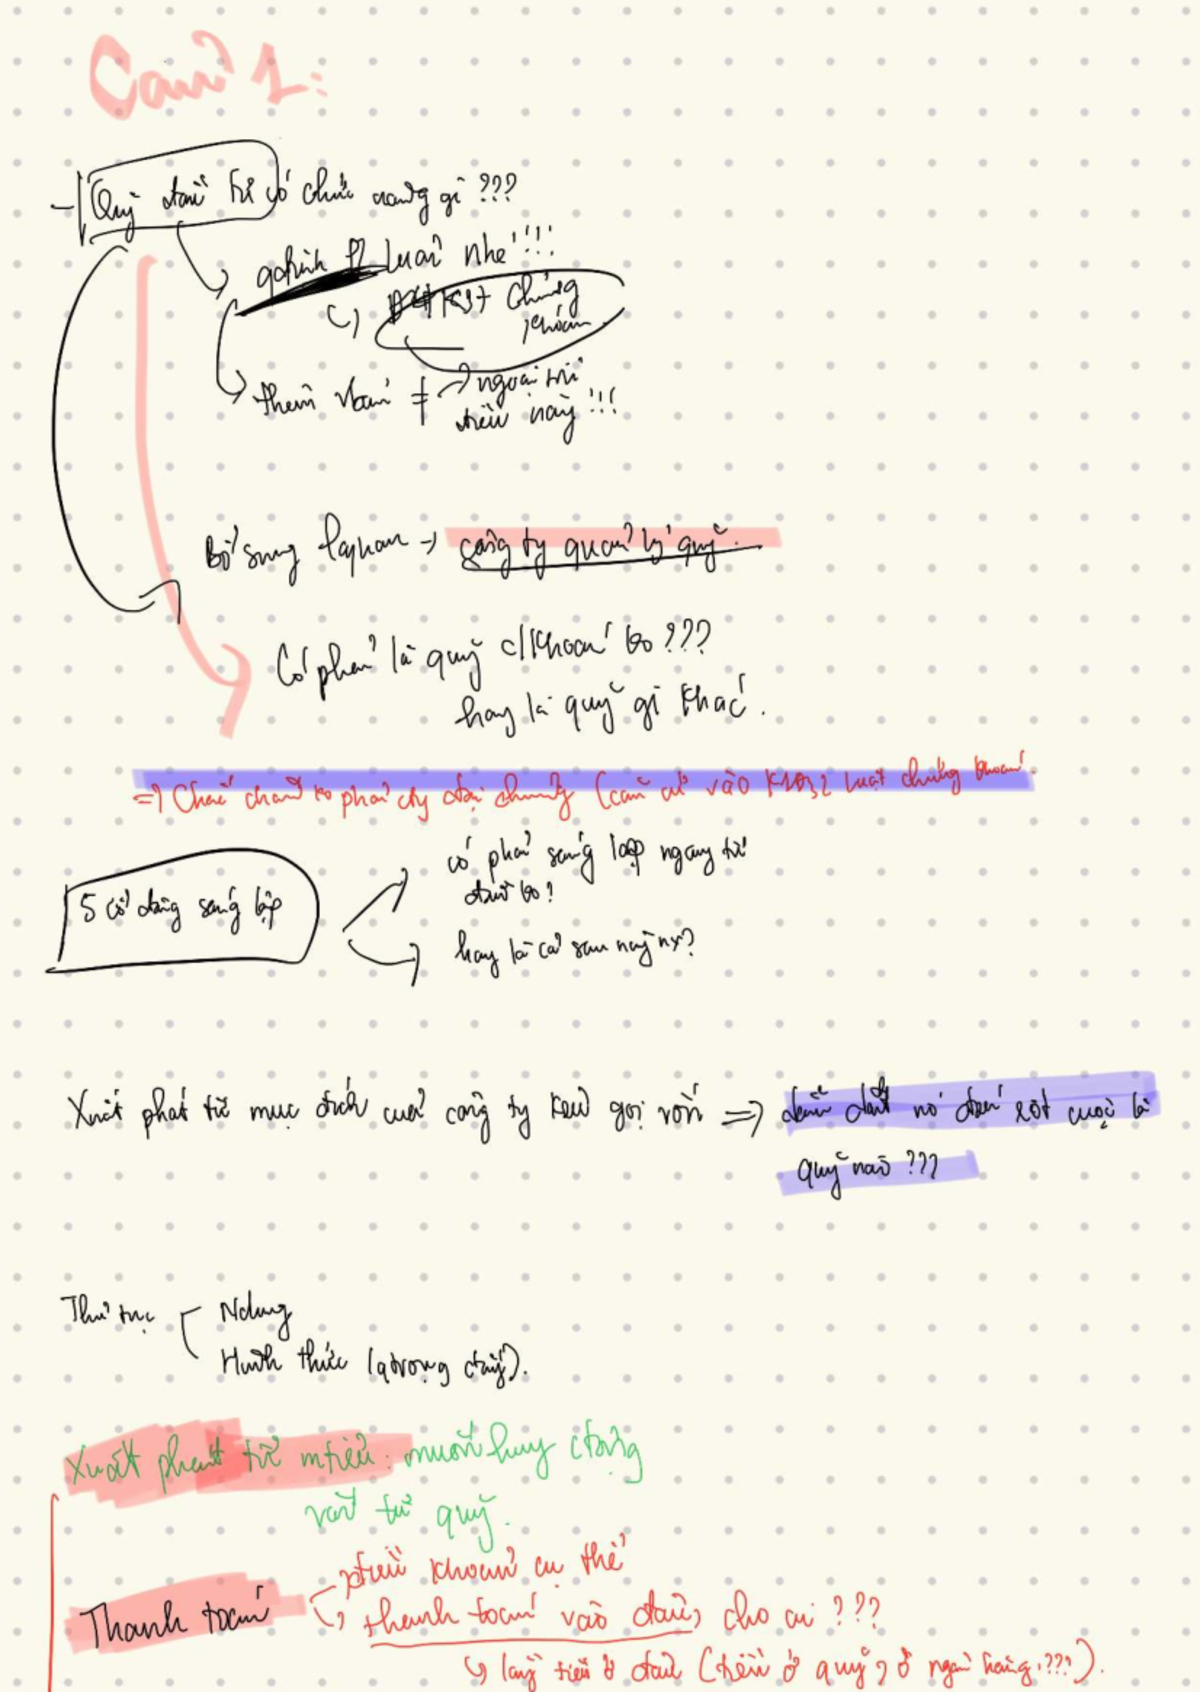 Câu 1:
- Quỹ đầu tư có chức năng gì ???
luai nhé !!!
chứng
khoán
thêm vấn ≠ → ngoại trừ
điều này !!!
Bổ sung → công ty quản lý quỹ.
Có phải là quỹ c/khoán ko ???
hay là quỹ gì khác.
=> Chắc chắn ko phải cty đại chúng (căn cứ vào K1Đ32 luật chứng khoán.
5 cổ đông sáng lập
có phải sáng lập ngay từ
đầu ko?
hay là cả sau này nx?
Xuất phát từ mục đích của công ty kêu gọi vốn => dẫn dắt nó đến rốt cuộc là
quỹ nào ???
Thủ tục
Ndung
Hình thức (qtrọng đấy).
Xuất phát từ mtiêu: muốn huy động
vốn từ quỹ.
Thanh toán
điều khoản cụ thể
thanh toán vào đâu, cho ai ???
lấy tiền ở đâu (tiền ở quỹ, ở ngân hàng.???).